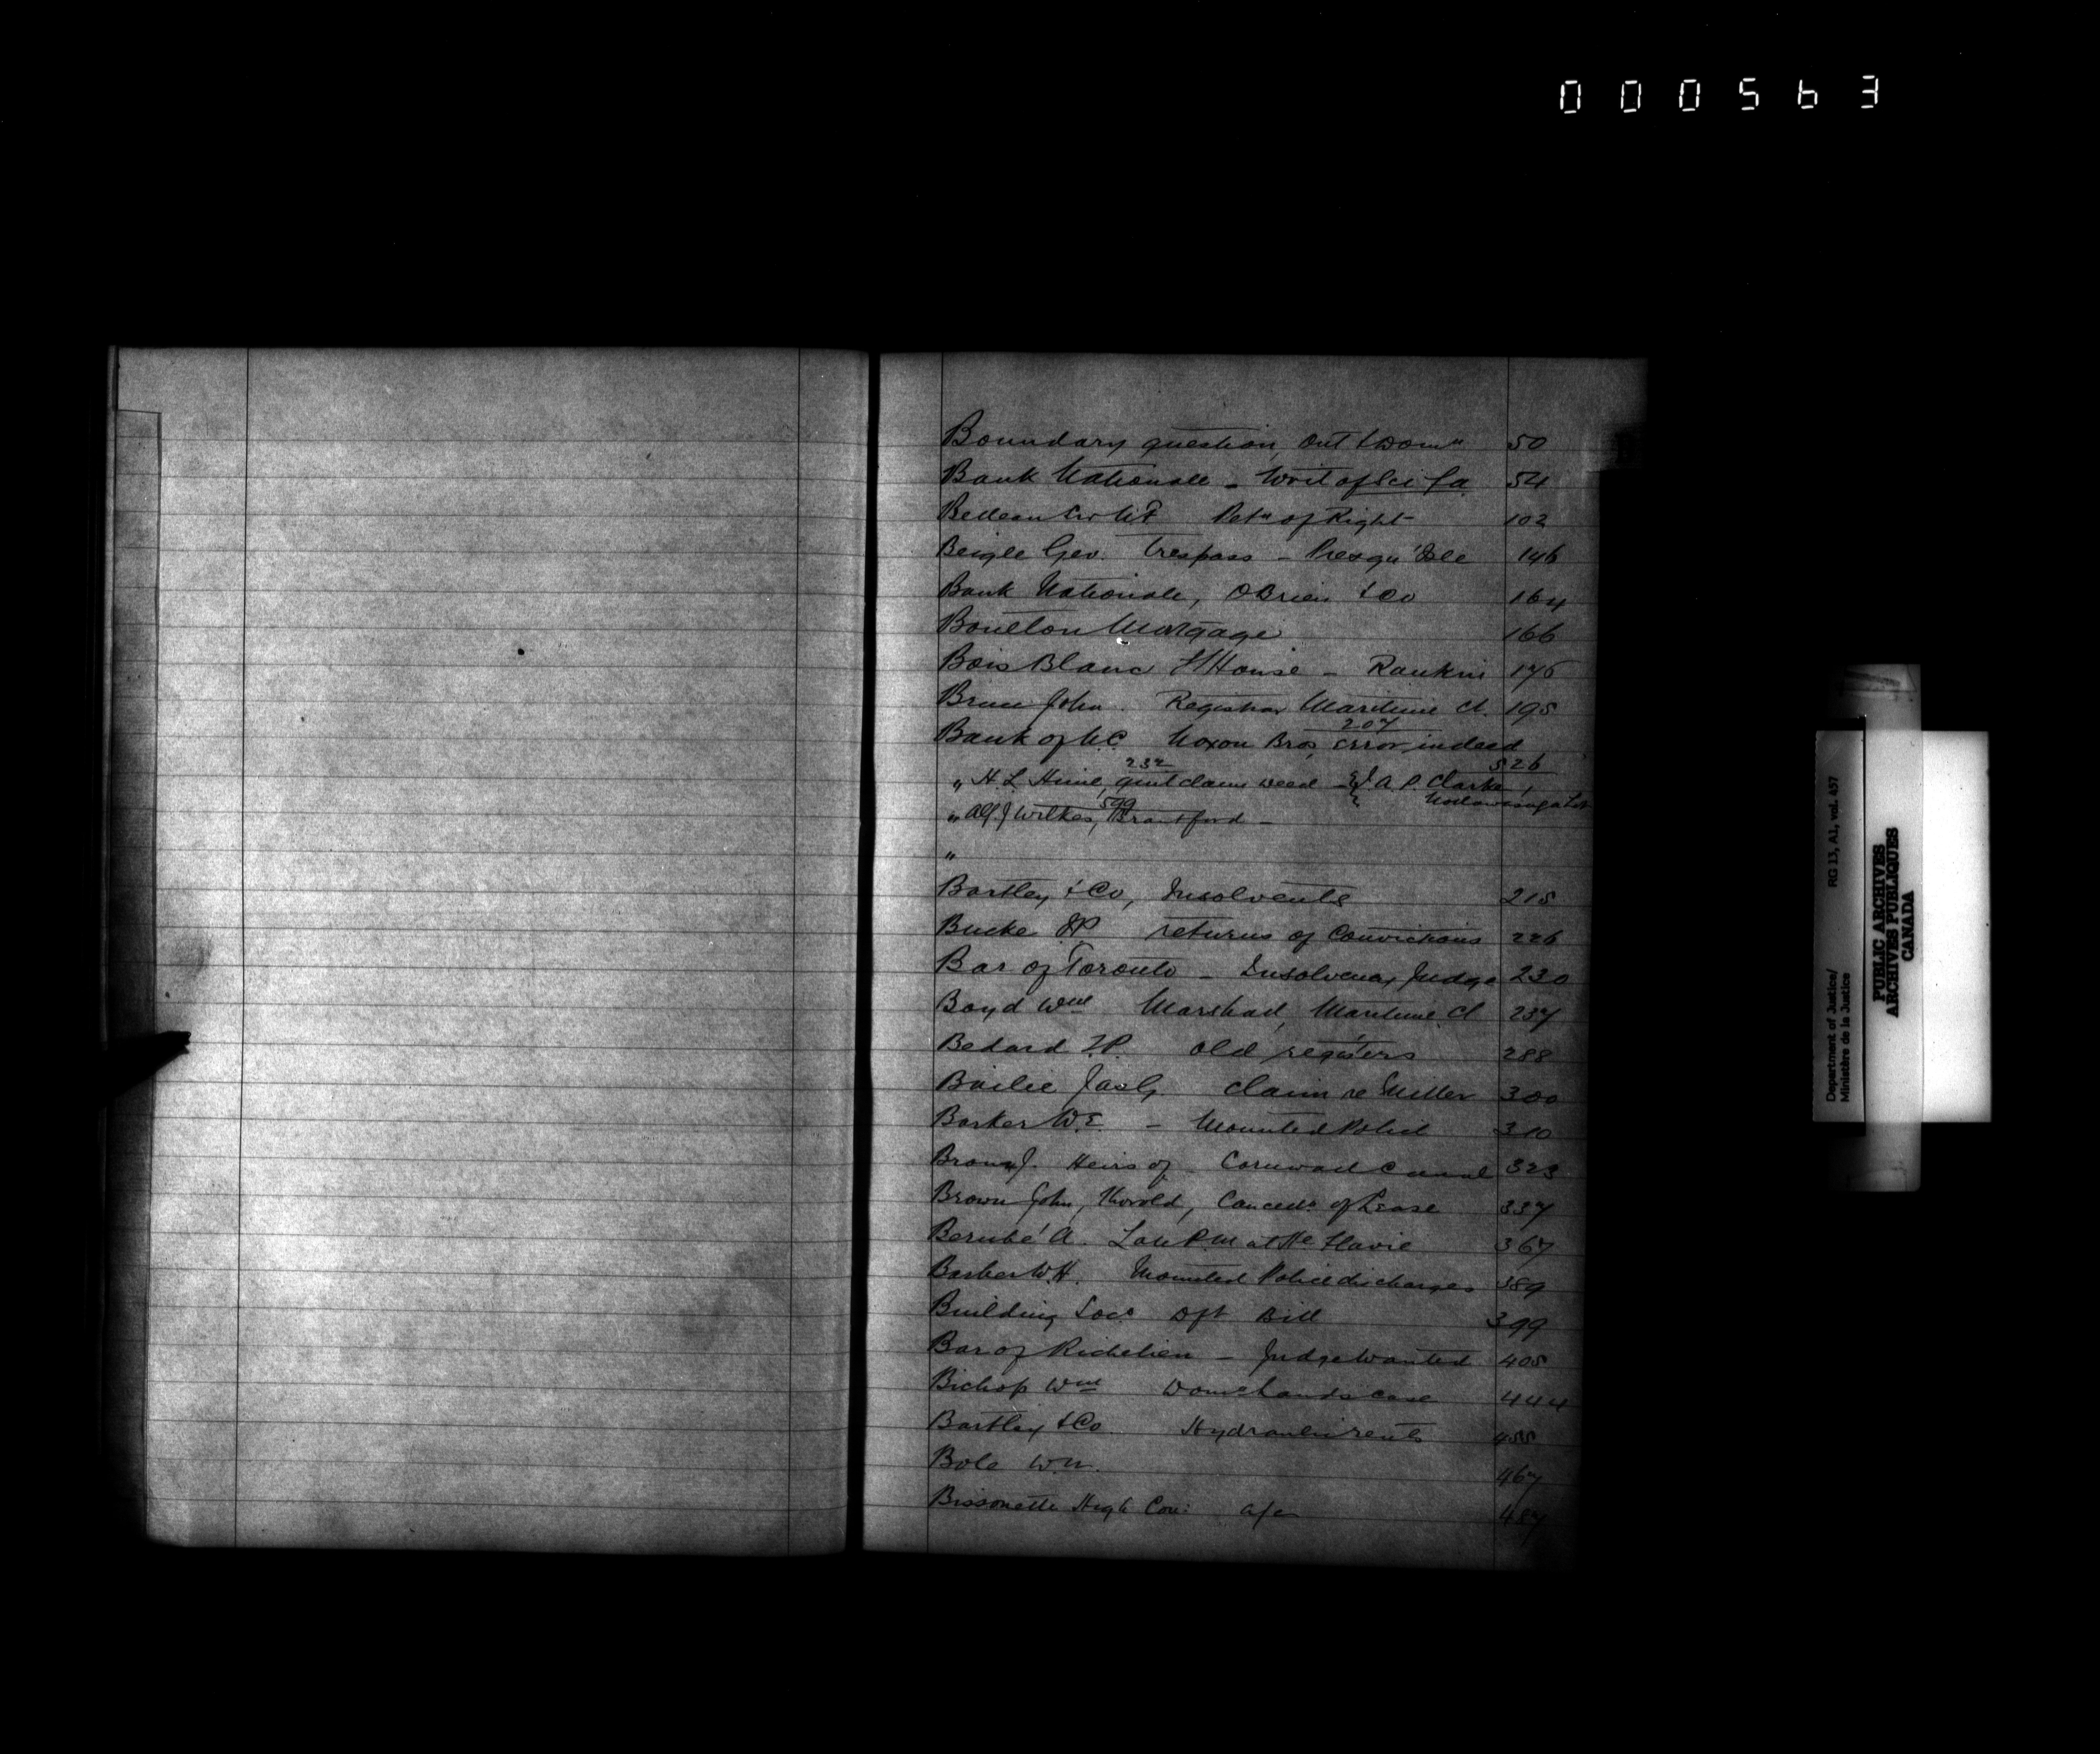 000563
Boundary question, Ont & Domn 50
Bank Nationale - Writ of Sci fa 54
Belleau Sir N F Petn of Right 102
Beigle Geo. Trespass - Presqu'Isle 146
Bank Nationale, O'Brien & Co 164
Boulton Mortgage 166
Bois Blanc L House - Rankin 175
Bruce John. Registrar Maritime Ct. 195
207
Bank of U.C. Noxon Bros, Error in deed
232 526
" H. L. Hime, quit claim deed - A. P. Clarke,
599
" Alf. J Wilkes, Brantford -
"
Bartley & Co, Insolvents 215
Bucke returns of Convictions 226
Bar of Toronto - Insolvency Judge 230
Boyd Wm Marshal, Maritime Ct 237
Bedard T.P. old registers 288
Bailie Jas G. claim re Miller 300
Barker W.E. - Mounted Police 310
Brown J. Heirs of Cornwall Canal 323
Brown John, Thorold, Cancelln of Lease 337
Berubé A. Late P.M at Ste Flavie 367
Barber W.H. Mounted Police discharges 389
Building Socs Dft Bill 399
Bar of Richelieu - Judge wanted 405
Bishop Wm Domn Lands case 444
Bartley & Co. Hydraulic rents 455
Bole W.N. 467
Bissonette High Con: a/c 487
Department of Justice/
Ministère de la Justice
RG 13, A1, vol. 457
PUBLIC ARCHIVES
ARCHIVES PUBLIQUES
CANADA